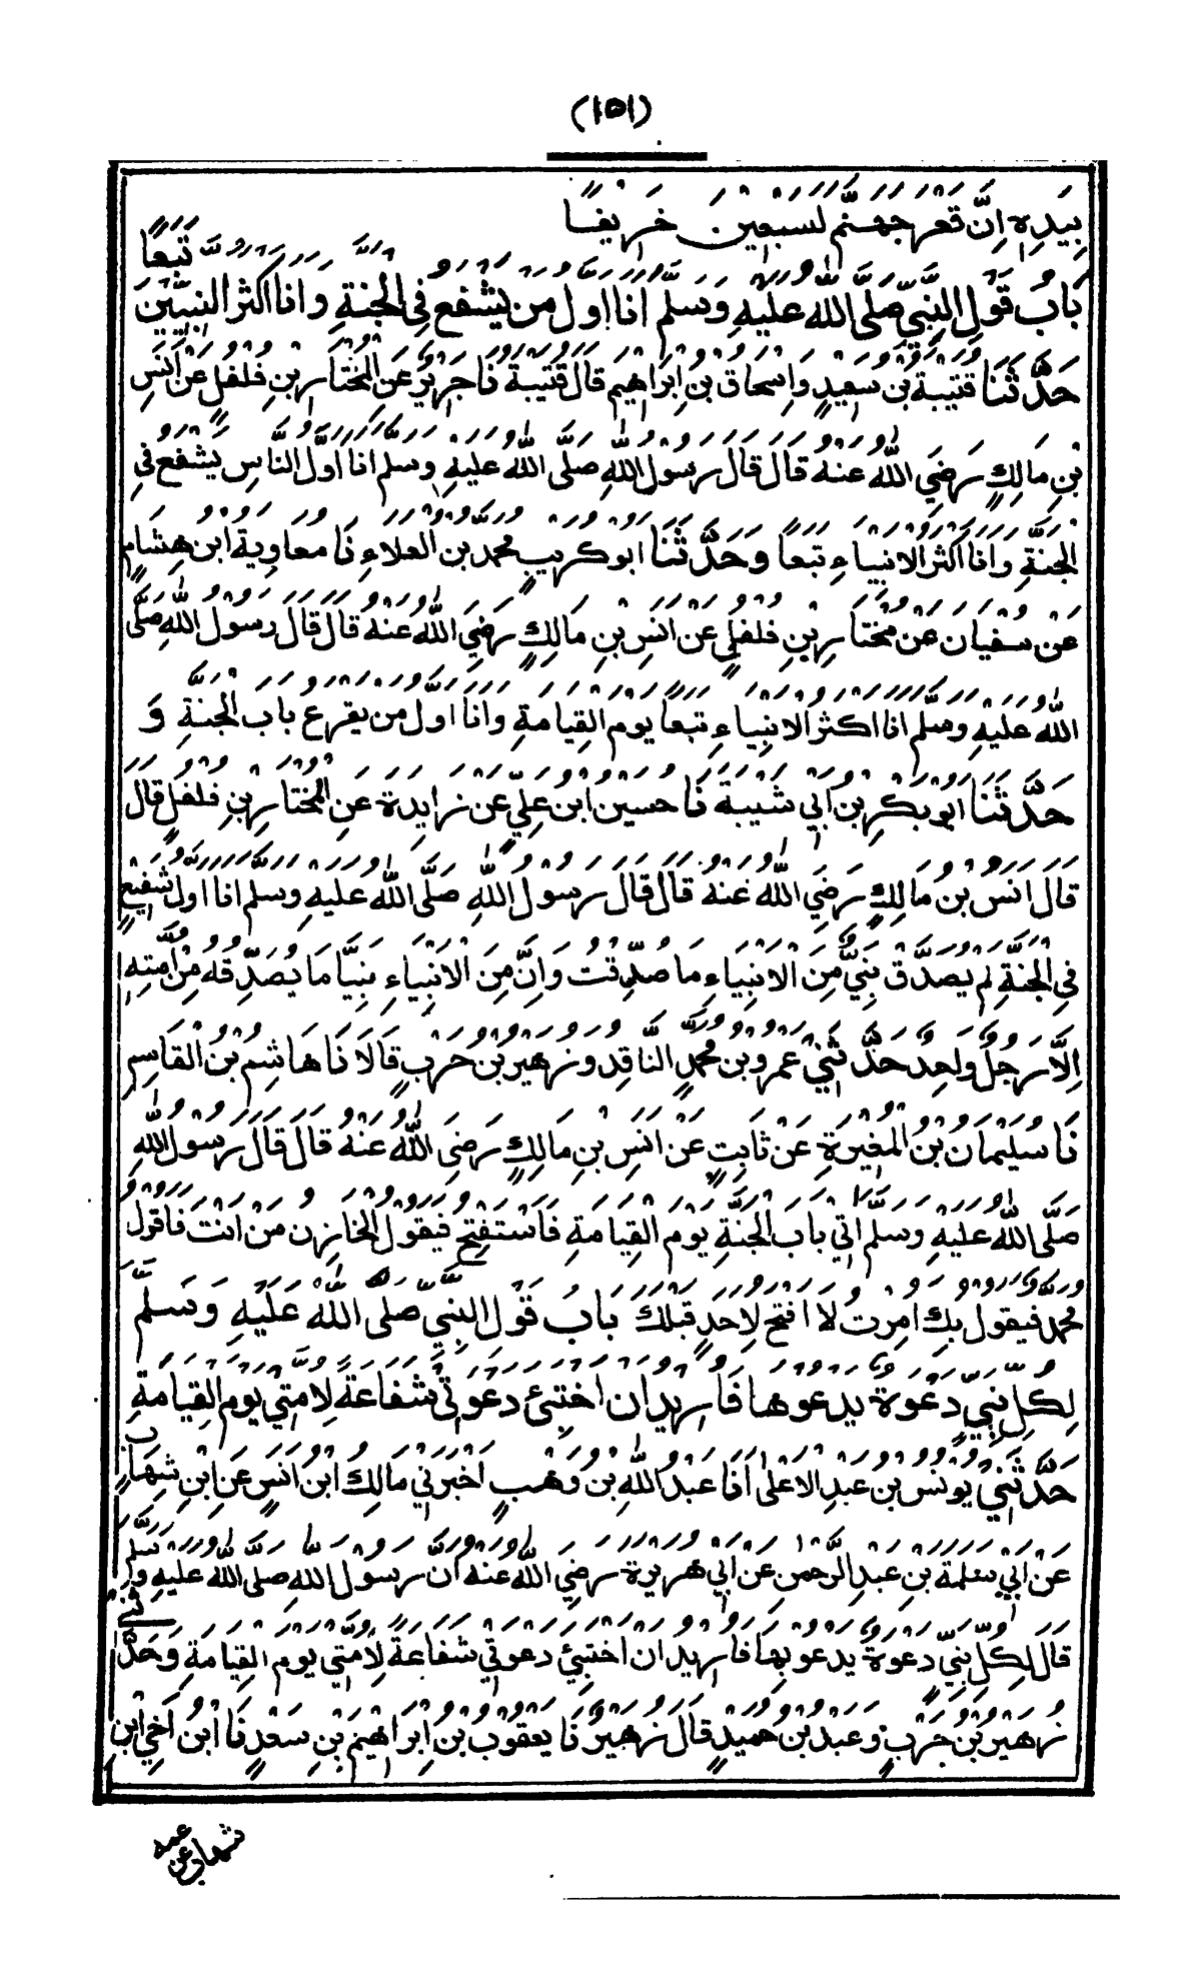 (١٥١)
بِيَدِهٖ اِنَّ قَعْرَ جَهَنَّمَ لَسَبْعِيْنَ خَرِيْفًا
بَابُ قَوْلِ النَّبِيِّ صَلَّى اللهُ عَلَيْهِ وَسَلَّمَ اَنَا اَوَّلُ مَنْ يَشْفَعُ فِى الْجَنَّةِ وَاَنَا اَكْثَرُ النَّبِيِّيْنَ تَبَعًا
حَدَّثَنَا قُتَيْبَةُ بْنُ سَعِيْدٍ وَاِسْحَاقُ بْنُ اِبْرَاهِيْمَ قَالَ قُتَيْبَةُ نَا جَرِيْرٌ عَنِ الْمُخْتَارِ بْنِ فُلْفُلٍ عَنْ اَنَسِ
بْنِ مَالِكٍ رَضِيَ اللهُ عَنْهُ قَالَ قَالَ رَسُوْلُ اللهِ صَلَّى اللهُ عَلَيْهِ وَسَلَّمَ اَنَا اَوَّلُ النَّاسِ يَشْفَعُ فِى
الْجَنَّةِ وَاَنَا اَكْثَرُ الْاَنْبِيَاءِ تَبَعًا وَحَدَّثَنَا اَبُوْ كُرَيْبٍ مُحَمَّدُ بْنُ الْعَلَاءِ نَا مُعَاوِيَةُ ابْنُ هِشَامٍ
عَنْ سُفْيَانَ عَنْ مُخْتَارِ بْنِ فُلْفُلٍ عَنْ اَنَسِ بْنِ مَالِكٍ رَضِيَ اللهُ عَنْهُ قَالَ قَالَ رَسُوْلُ اللهِ صَلَّى
اللهُ عَلَيْهِ وَسَلَّمَ اَنَا اَكْثَرُ الْاَنْبِيَاءِ تَبَعًا يَوْمَ الْقِيَامَةِ وَاَنَا اَوَّلُ مَنْ يَقْرَعُ بَابَ الْجَنَّةِ وَ
حَدَّثَنَا اَبُوْ بَكْرِ بْنُ اَبِيْ شَيْبَةَ نَا حُسَيْنُ ابْنُ عَلِيٍّ عَنْ زَايِدَةَ عَنِ الْمُخْتَارِ بْنِ فُلْفُلٍ قَالَ
قَالَ اَنَسُ بْنُ مَالِكٍ رَضِيَ اللهُ عَنْهُ قَالَ قَالَ رَسُوْلُ اللهِ صَلَّى اللهُ عَلَيْهِ وَسَلَّمَ اَنَا اَوَّلُ شَفِيْعٍ
فِي الْجَنَّةِ لَمْ يُصَدَّقْ نَبِيٌّ مِنَ الْاَنْبِيَاءِ مَا صُدِّقْتُ وَاِنَّ مِنَ الْاَنْبِيَاءِ نَبِيًّا مَا يُصَدِّقُهُ مِنْ اُمَّتِهٖ
اِلَّا رَجُلٌ وَاحِدٌ حَدَّثَنِيْ عَمْرُو بْنُ مُحَمَّدٍ النَّاقِدُ وَزُهَيْرُ بْنُ حَرْبٍ قَالَا نَا هَاشِمُ بْنُ الْقَاسِمِ
نَا سُلَيْمَانُ بْنُ الْمُغِيْرَةِ عَنْ ثَابِتٍ عَنْ اَنَسِ بْنِ مَالِكٍ رَضِيَ اللهُ عَنْهُ قَالَ قَالَ رَسُوْلُ اللهِ
صَلَّى اللهُ عَلَيْهِ وَسَلَّمَ اٰتِيْ بَابَ الْجَنَّةِ يَوْمَ الْقِيَامَةِ فَاَسْتَفْتِحُ فَيَقُوْلُ الْخَازِنُ مَنْ اَنْتَ فَاَقُوْلُ
مُحَمَّدٌ فَيَقُوْلُ بِكَ اُمِرْتُ لَا اَفْتَحُ لِاَحَدٍ قَبْلَكَ بَابُ قَوْلِ النَّبِيِّ صَلَّى اللهُ عَلَيْهِ وَسَلَّمَ
لِكُلِّ نَبِيٍّ دَعْوَةٌ يَدْعُوْهَا فَاُرِيْدُ اَنْ اَخْتَبِئَ دَعْوَتِيْ شَفَاعَةً لِاُمَّتِيْ يَوْمَ الْقِيَامَةِ
حَدَّثَنِيْ يُوْنُسُ بْنُ عَبْدِ الْاَعْلٰى اَنَا عَبْدُ اللهِ بْنُ وَهْبٍ اَخْبَرَنِيْ مَالِكُ ابْنُ اَنَسٍ عَنِ ابْنِ شِهَابٍ
عَنْ اَبِيْ سَلَمَةَ بْنِ عَبْدِ الرَّحْمٰنِ عَنْ اَبِيْ هُرَيْرَةَ رَضِيَ اللهُ عَنْهُ اَنَّ رَسُوْلَ اللهِ صَلَّى اللهُ عَلَيْهِ وَسَلَّمَ
قَالَ لِكُلِّ نَبِيٍّ دَعْوَةٌ يَدْعُوْ بِهَا فَاُرِيْدُ اَنْ اَخْتَبِئَ دَعْوَتِيْ شَفَاعَةً لِاُمَّتِيْ يَوْمَ الْقِيَامَةِ وَحَدَّثَنِيْ
زُهَيْرُ بْنُ حَرْبٍ وَعَبْدُ بْنُ حُمَيْدٍ قَالَ زُهَيْرٌ نَا يَعْقُوْبُ بْنُ اِبْرَاهِيْمَ بْنِ سَعْدٍ نَا ابْنُ اَخِي ابْنِ
شهاب عن عمه